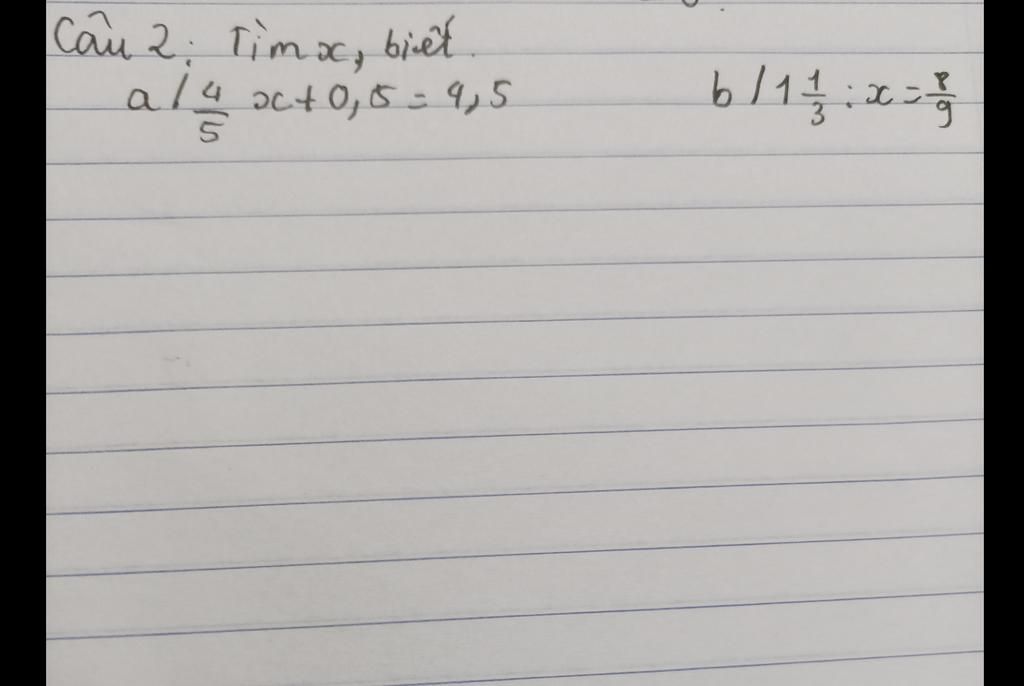 Câu 2: Tìm x, biết.
a/ 4/5 x + 0,5 = 4,5 b/ 1 1/3 : x = 8/9